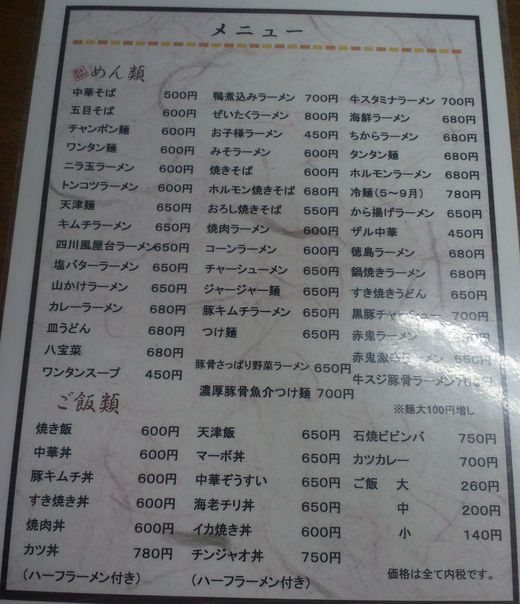 メニュー
めん類
中華そば 500円
五目そば 600円
チャンポン麺 600円
ワンタン麺 600円
ニラ玉ラーメン 600円
トンコツラーメン 600円
天津麺 650円
キムチラーメン 650円
四川風屋台ラーメン 650円
塩バターラーメン 650円
山かけラーメン 650円
カレーラーメン 680円
皿うどん 680円
八宝菜 680円
ワンタンスープ 450円
鴨煮込みラーメン 700円
ぜいたくラーメン 800円
お子様ラーメン 450円
みそラーメン 600円
焼きそば 600円
ホルモン焼きそば 680円
おろし焼きそば 550円
焼肉ラーメン 600円
コーンラーメン 600円
チャーシューメン 650円
ジャージャー麺 650円
豚キムチラーメン 650円
つけ麺 650円
豚骨さっぱり野菜ラーメン 650円
濃厚豚骨魚介つけ麺 700円
牛スタミナラーメン 700円
海鮮ラーメン 680円
ちからラーメン 680円
タンタン麺 680円
ホルモンラーメン 680円
冷麺(5～9月) 780円
から揚げラーメン 650円
ザル中華 450円
徳島ラーメン 680円
鍋焼きラーメン 680円
すき焼きうどん 650円
黒豚チャーシュー 700円
赤鬼ラーメン
赤鬼激辛ラーメン 650円
牛スジ豚骨ラーメン 700円
※麺大100円増し
ご飯類
焼き飯 600円
中華丼 600円
豚キムチ丼 600円
すき焼き丼 600円
焼肉丼 600円
カツ丼 780円
(ハーフラーメン付き)
天津飯 650円
マーボ丼 650円
中華ぞうすい 650円
海老チリ丼 650円
イカ焼き丼 650円
チンジャオ丼 750円
(ハーフラーメン付き)
石焼ビビンバ 750円
カツカレー 700円
ご飯 大 260円
中 200円
小 140円
価格は全て内税です。